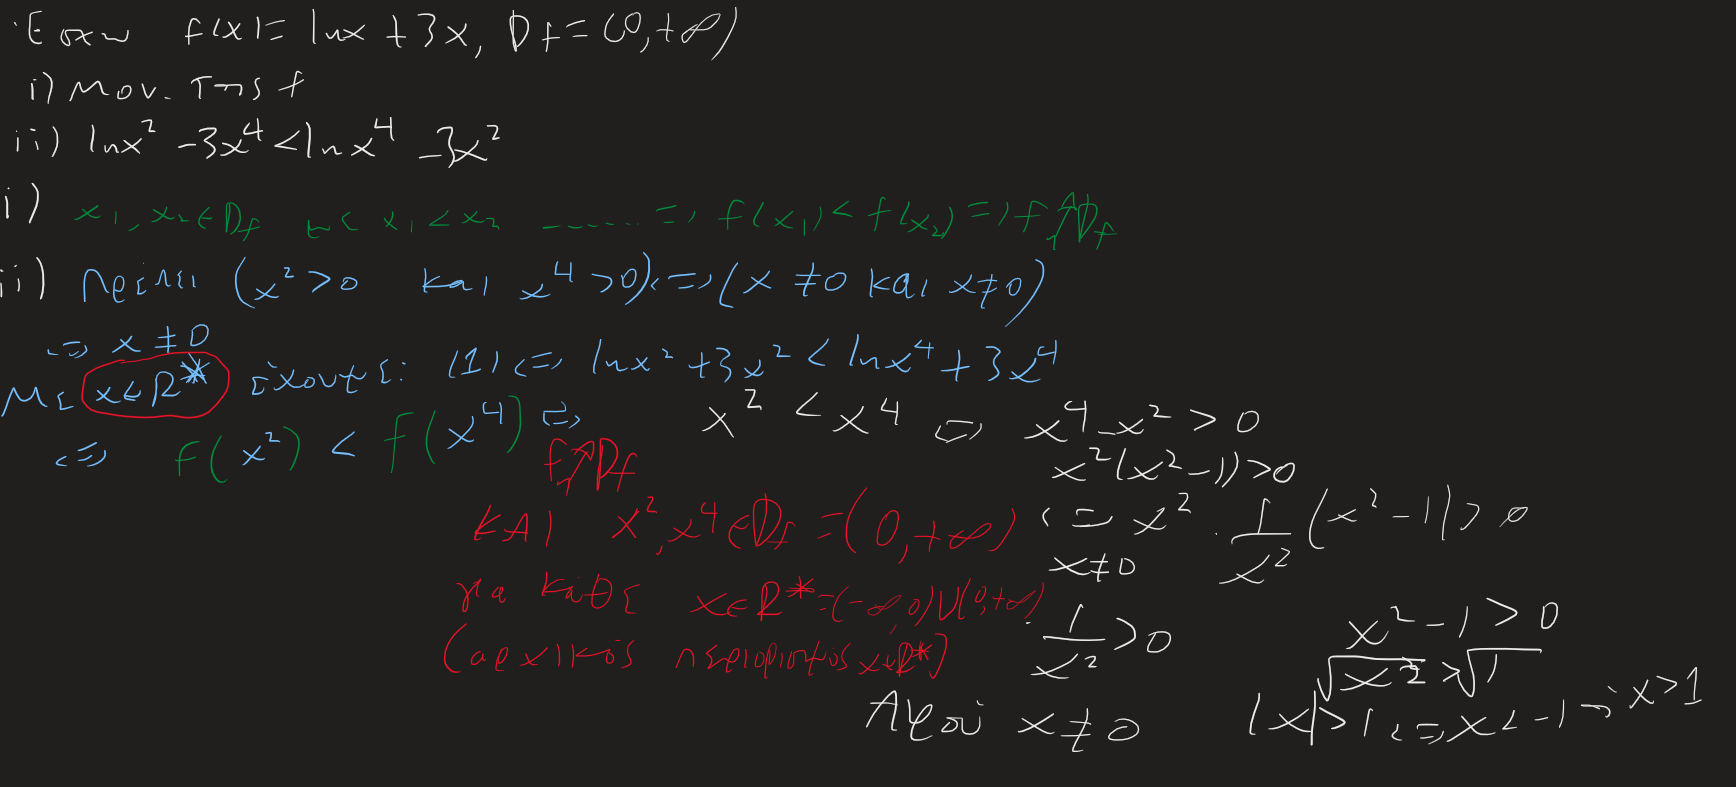 Έστω f(x)= lnx +3x, Df=(0,+∞)
i) Μον. της f
ii) lnx² -3x⁴ < lnx⁴ -3x²
i) x₁,x₂∈Df με x₁<x₂ ....... => f(x₁)<f(x₂)=>f↑Df
ii) Πρέπει (x²>0 και x⁴>0)<=>(x≠0 και x≠0)
<=> x≠0
Με x∈R* έχουμε: (1)<=> lnx²+3x² < lnx⁴+3x⁴
<=> f(x²) < f(x⁴) <=> x² < x⁴ <=> x⁴-x²>0
f↑Df
x²(x²-1)>0
ΚΑΙ x²,x⁴∈Df =(0,+∞)
<=> x² · 1/x² (x²-1)>0
x≠0
για κάθε x∈R*=(-∞,0)∪(0,+∞)
· 1/x² >0
x²-1>0
(αρχικός περιορισμός x∈R*)
√x² > √1
Αφού x≠0
|x|>1<=>x<-1 ή x>1